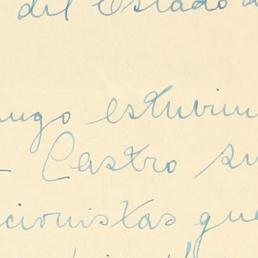 del Estado
ngo estuvim
- Castro su
cionistas que